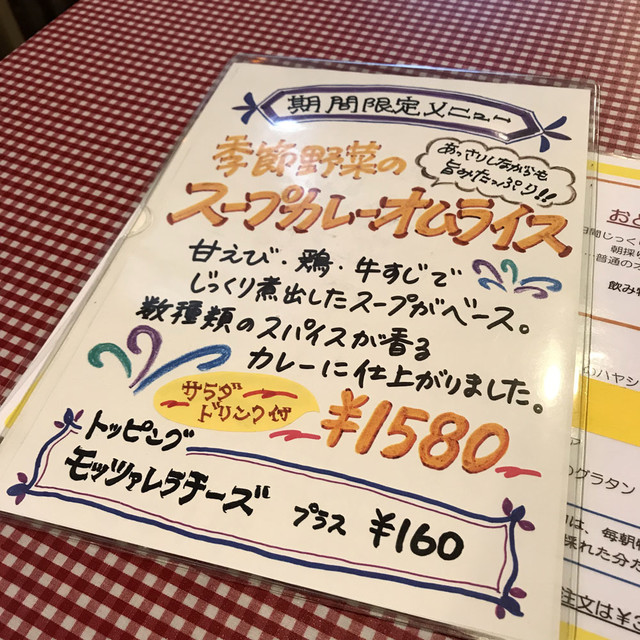 期間限定メニュー
季節野菜の
あっさりしながらも
旨みたっぷり!!
スープカレーオムライス
甘えび・鶏・牛すじで
じっくり煮出したスープがベース。
数種類のスパイスが香る
カレーに仕上がりました。
サラダ
ドリンク付
¥1580
トッピング
モッツァレラチーズ プラス ¥160
朝採
…普通の
飲み
のハヤシ
のグラタン
は、毎朝
採れた分だ
注文は¥